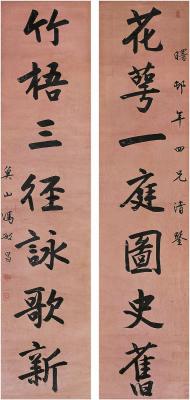 花萼一庭圖史舊
曙邨年四兄清鑒
竹梧三徑詠歌新
山馮 昌